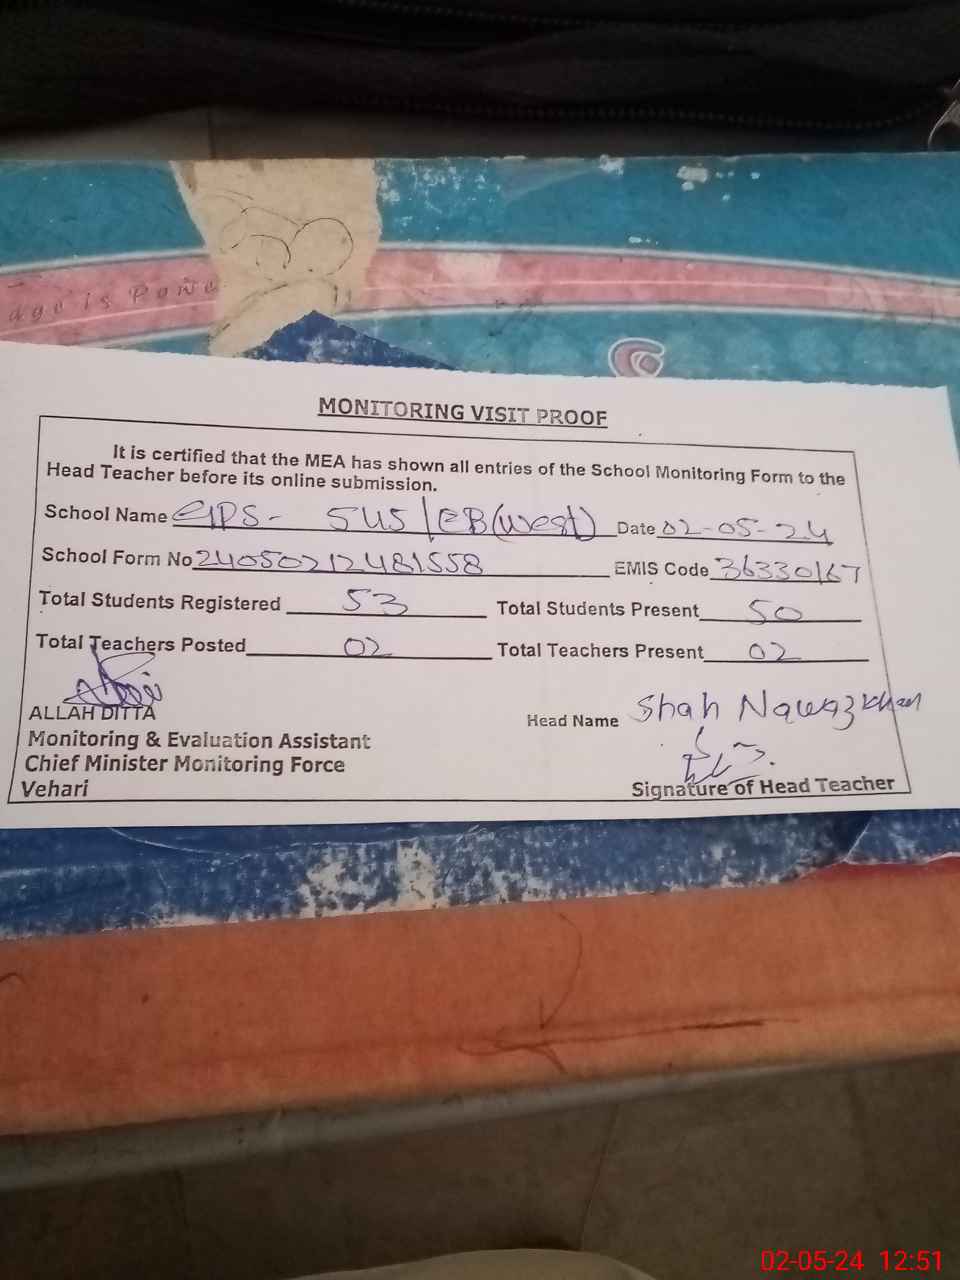 dge is Powe
MONITORING VISIT PROOF
It is certified that the MEA has shown all entries of the School Monitoring Form to the
Head Teacher before its online submission.
School Name GPS- 545/EB(West) Date 02-05-24
School Form No 24050212481558 EMIS Code 36330167
Total Students Registered 53 Total Students Present 50
Total Teachers Posted 02 Total Teachers Present 02
ALLAH DITTA
Head Name Shah Nawaz Khan
Monitoring & Evaluation Assistant
Chief Minister Monitoring Force
Vehari
Signature of Head Teacher
02-05-24 12:51